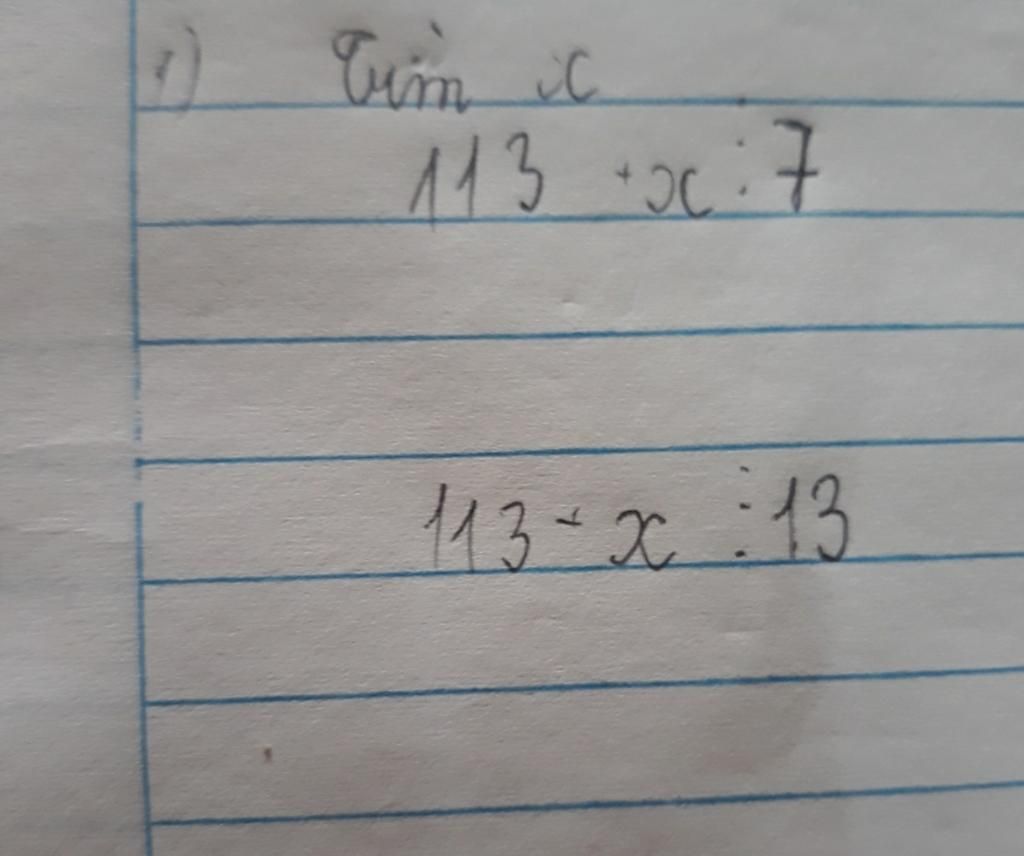 1) Tìm x
113 + x ⋮ 7
113 + x ⋮ 13